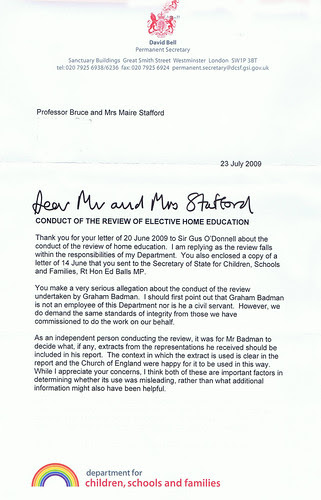 David Bell
Permanent Secretary
Sanctuary Buildings Great Smith Street Westminster London SW1P 3BT
tel: 020 7925 6938/6236 fax: 020 7925 6924 permanent.secretary@dcsf.gsi.gov.uk
Professor Bruce and Mrs Maire Stafford
23 July 2009
Dear Mr and Mrs Stafford
CONDUCT OF THE REVIEW OF ELECTIVE HOME EDUCATION
Thank you for your letter of 20 June 2009 to Sir Gus O'Donnell about the
conduct of the review of home education. I am replying as the review falls
within the responsibilities of my Department. You also enclosed a copy of a
letter of 14 June that you sent to the Secretary of State for Children, Schools
and Families, Rt Hon Ed Balls MP.
You make a very serious allegation about the conduct of the review
undertaken by Graham Badman. I should first point out that Graham Badman
is not an employee of this Department nor is he a civil servant. However, we
do demand the same standards of integrity from those we have
commissioned to do the work on our behalf.
As an independent person conducting the review, it was for Mr Badman to
decide what, if any, extracts from the representations he received should be
included in his report. The context in which the extract is used is clear in the
report and the Church of England were happy for it to be used in this way.
While I appreciate your concerns, I think both of these are important factors in
determining whether its use was misleading, rather than what additional
information might also have been helpful.
department for
children, schools and families